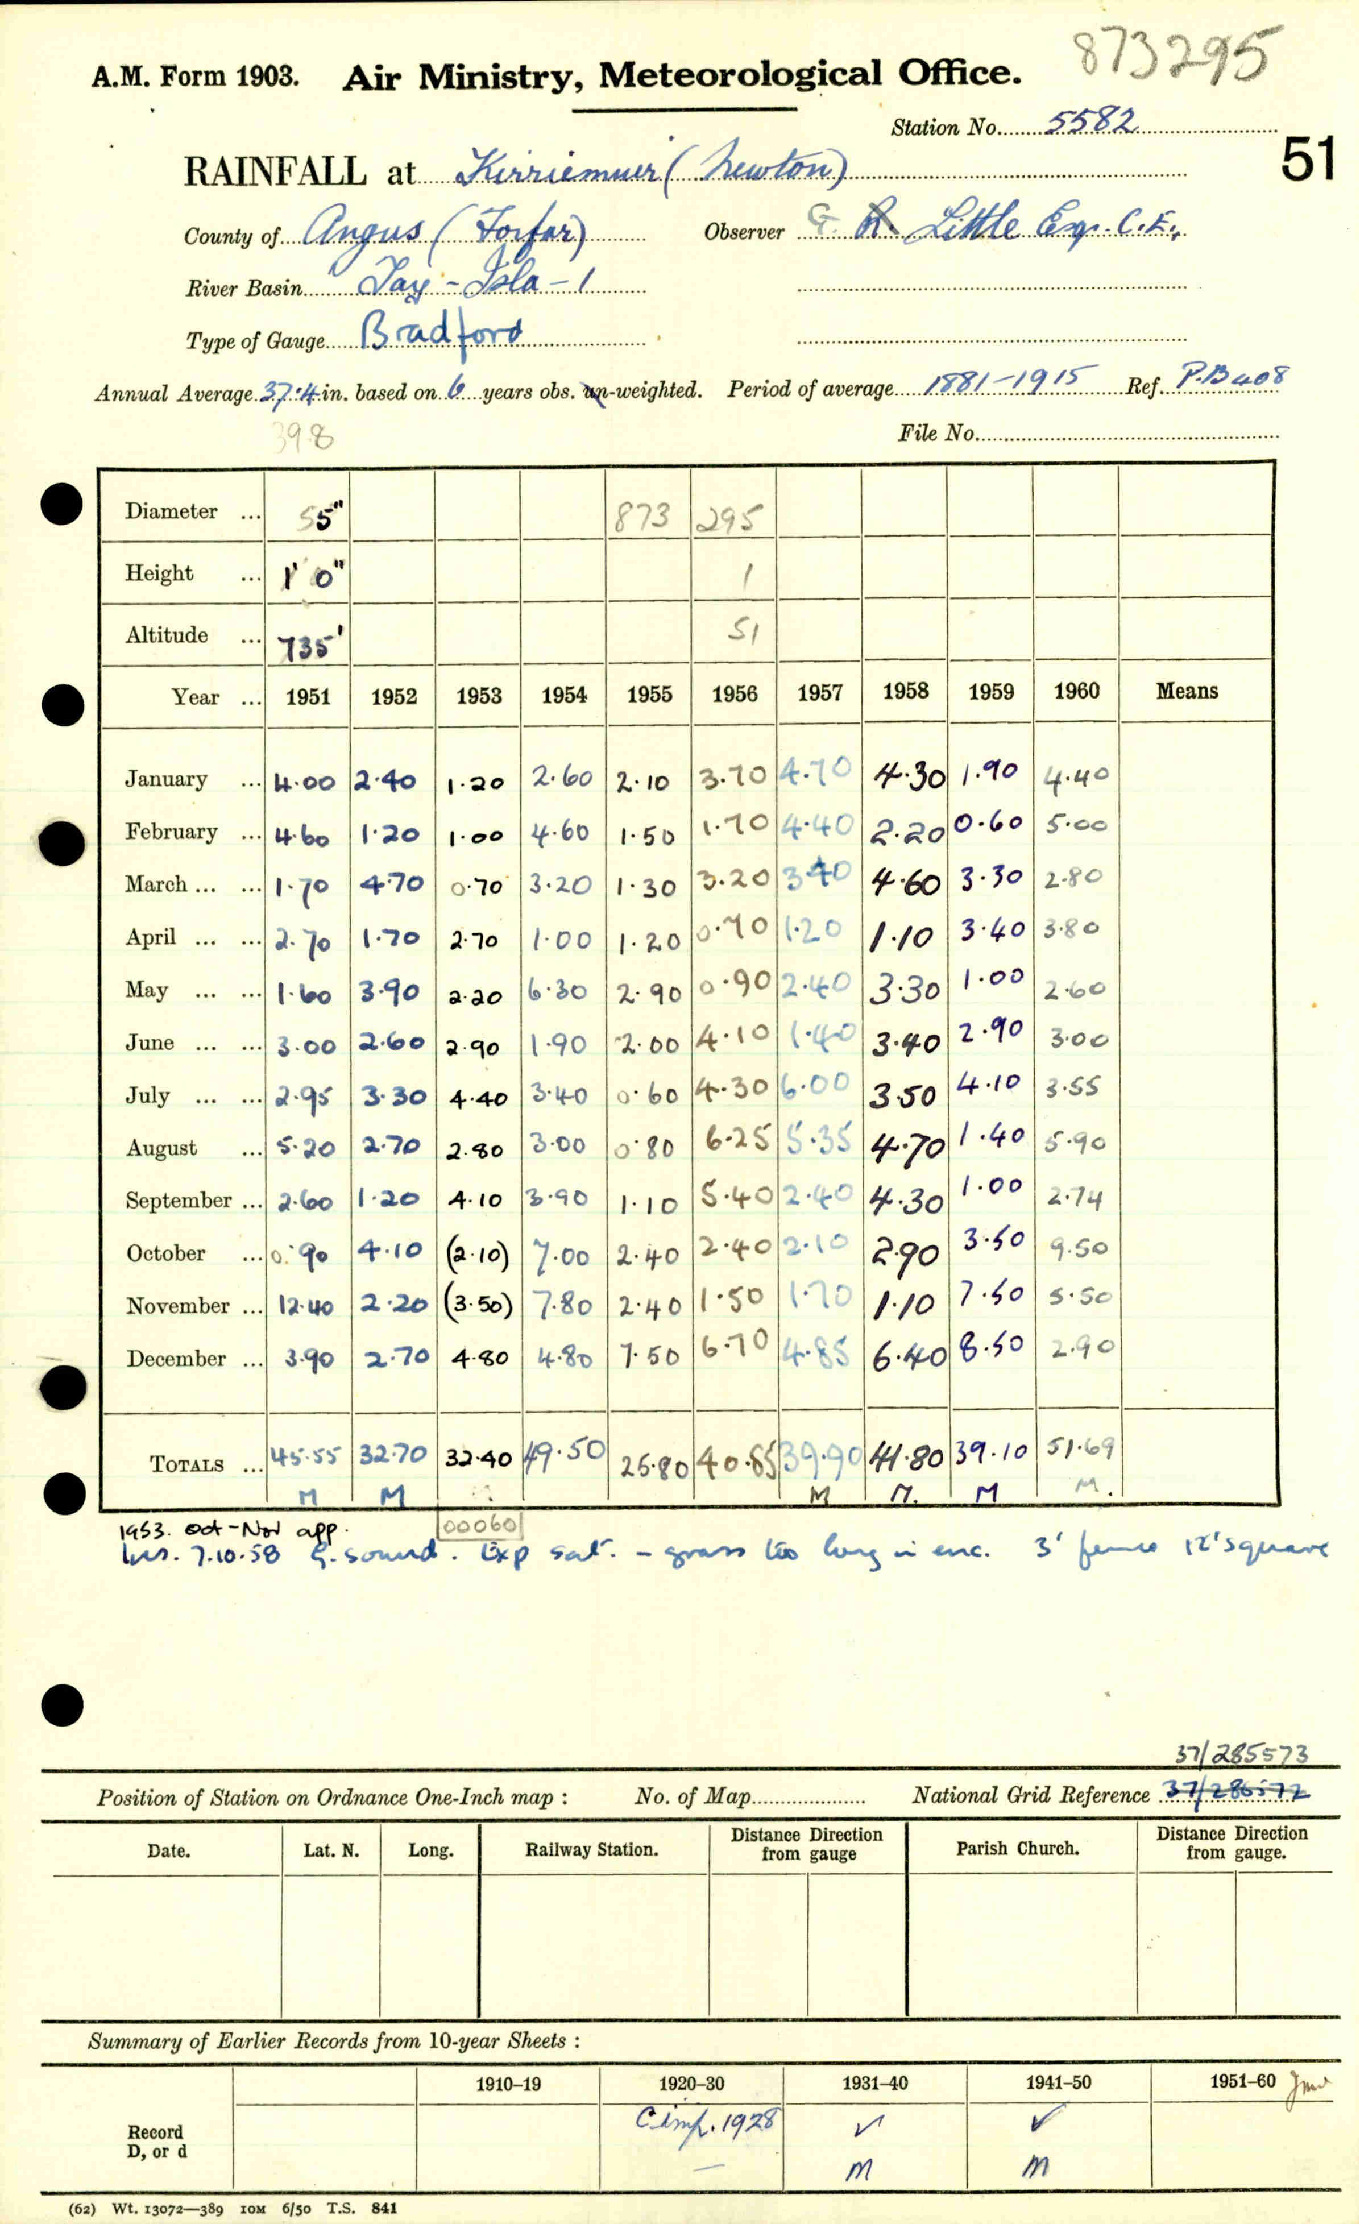 873295
A.M. Form 1903. Air Ministry, Meteorological Office.
Station No. 5582
51
RAINFALL at Kirriemuir (Newton)
County of Angus (Forfar) Observer G R Little Esq. C.E.,
River Basin Tay - Isla - 1
Type of Gauge Bradford
Annual Average 37.4 in. based on 6 years obs. un-weighted. Period of average 1881-1915 Ref. P.B 408
39.8
File No.
Diameter ... 5" 873 295
Height ... 1' 0" 1
Altitude ... 735' 51
Year ... 1951 1952 1953 1954 1955 1956 1957 1958 1959 1960 Means
January ... 4.00 2.40 1.20 2.60 2.10 3.70 4.70 4.30 1.90 4.40
February ... 4.60 1.20 1.00 4.60 1.50 1.70 4.40 2.20 0.60 5.00
March ... ... 1.70 4.70 0.70 3.20 1.30 3.20 3.40 4.60 3.30 2.80
April ... ... 2.70 1.70 2.70 1.00 1.20 0.70 1.20 1.10 3.40 3.80
May ... ... 1.60 3.90 2.20 6.30 2.90 0.90 2.40 3.30 1.00 2.60
June ... ... 3.00 2.60 2.90 1.90 2.00 4.10 1.40 3.40 2.90 3.00
July ... ... 2.95 3.30 4.40 3.40 0.60 4.30 6.00 3.50 4.10 3.55
August ... 5.20 2.70 2.80 3.00 0.80 6.25 5.35 4.70 1.40 5.90
September ... 2.60 1.20 4.10 3.90 1.10 5.40 2.40 4.30 1.00 2.74
October ... 0.90 4.10 (2.10) 7.00 2.40 2.40 2.10 2.90 3.50 9.50
November ... 12.40 2.20 (3.50) 7.80 2.40 1.50 1.70 1.10 7.50 5.50
December ... 3.90 2.70 4.80 4.80 7.50 6.70 4.85 6.40 8.50 2.90
TOTALS ... 45.55 32.70 32.40 49.50 25.80 40.85 39.90 41.80 39.10 51.69
M M M M M M.
1953. Oct-Nov app. 00060
Ins. 7.10.58 G. sound. Exp sat. - grass too long in enc. 3' fence 12' square
37/285573
Position of Station on Ordnance One-Inch map : No. of Map National Grid Reference 37/286572
Date. Lat. N. Long. Railway Station. Distance from gauge Direction Parish Church. Distance from gauge. Direction
Summary of Earlier Records from 10-year Sheets :
1910–19 1920–30 1931–40 1941–50 1951–60
Record D, or d Comp. 1928 ✓ ✓
— M M
(62) Wt. 13072—389 10M 6/50 T.S. 841